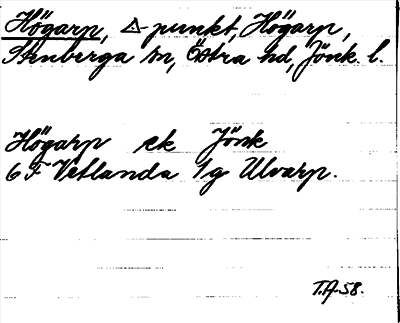 Högarp, △-punkt, Högarp,
Stenberga sn, Östra hd, Jönk. l.
Högarp ek Jönk
6F Vetlanda 1g Ulvarp.
T.A. 58.